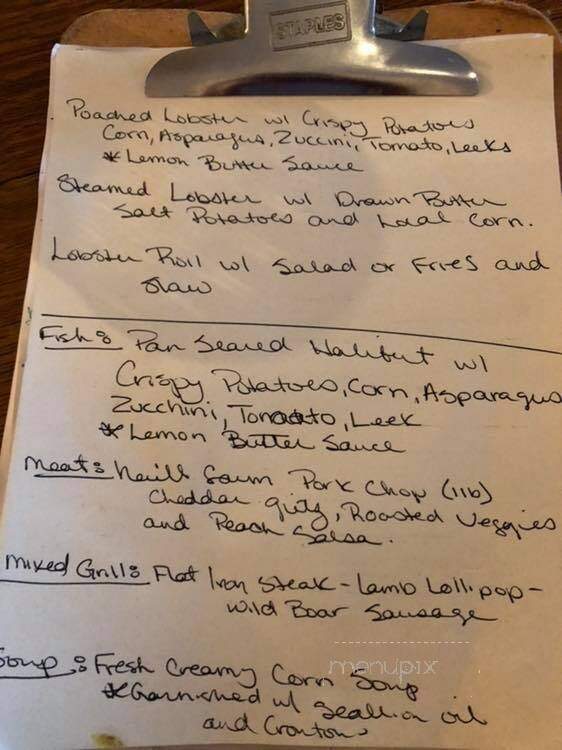 STAPLES
Poached Lobster w/ Crispy Potatoes
Corn, Asparagus, Zuccini, Tomato, Leeks
* Lemon Butter Sauce
Steamed Lobster w/ Drawn Butter
Salt Potatoes and Local Corn.
Lobster Roll w/ Salad or Fries and
Slaw
Fish: Pan Seared Halibut w/
Crispy Potatoes, Corn, Asparagus
Zucchini, Tomato, Leek
* Lemon Butter Sauce
Meat: Farm Pork Chop (1lb)
Cheddar grits, Roasted Veggies
and Peach Salsa.
Mixed Grill: Flat Iron Steak - Lamb Lollipop -
Wild Boar Sausage
Soup: Fresh Creamy Corn Soup
* Garnished w/ Scallion oil
and Croutons
menupix